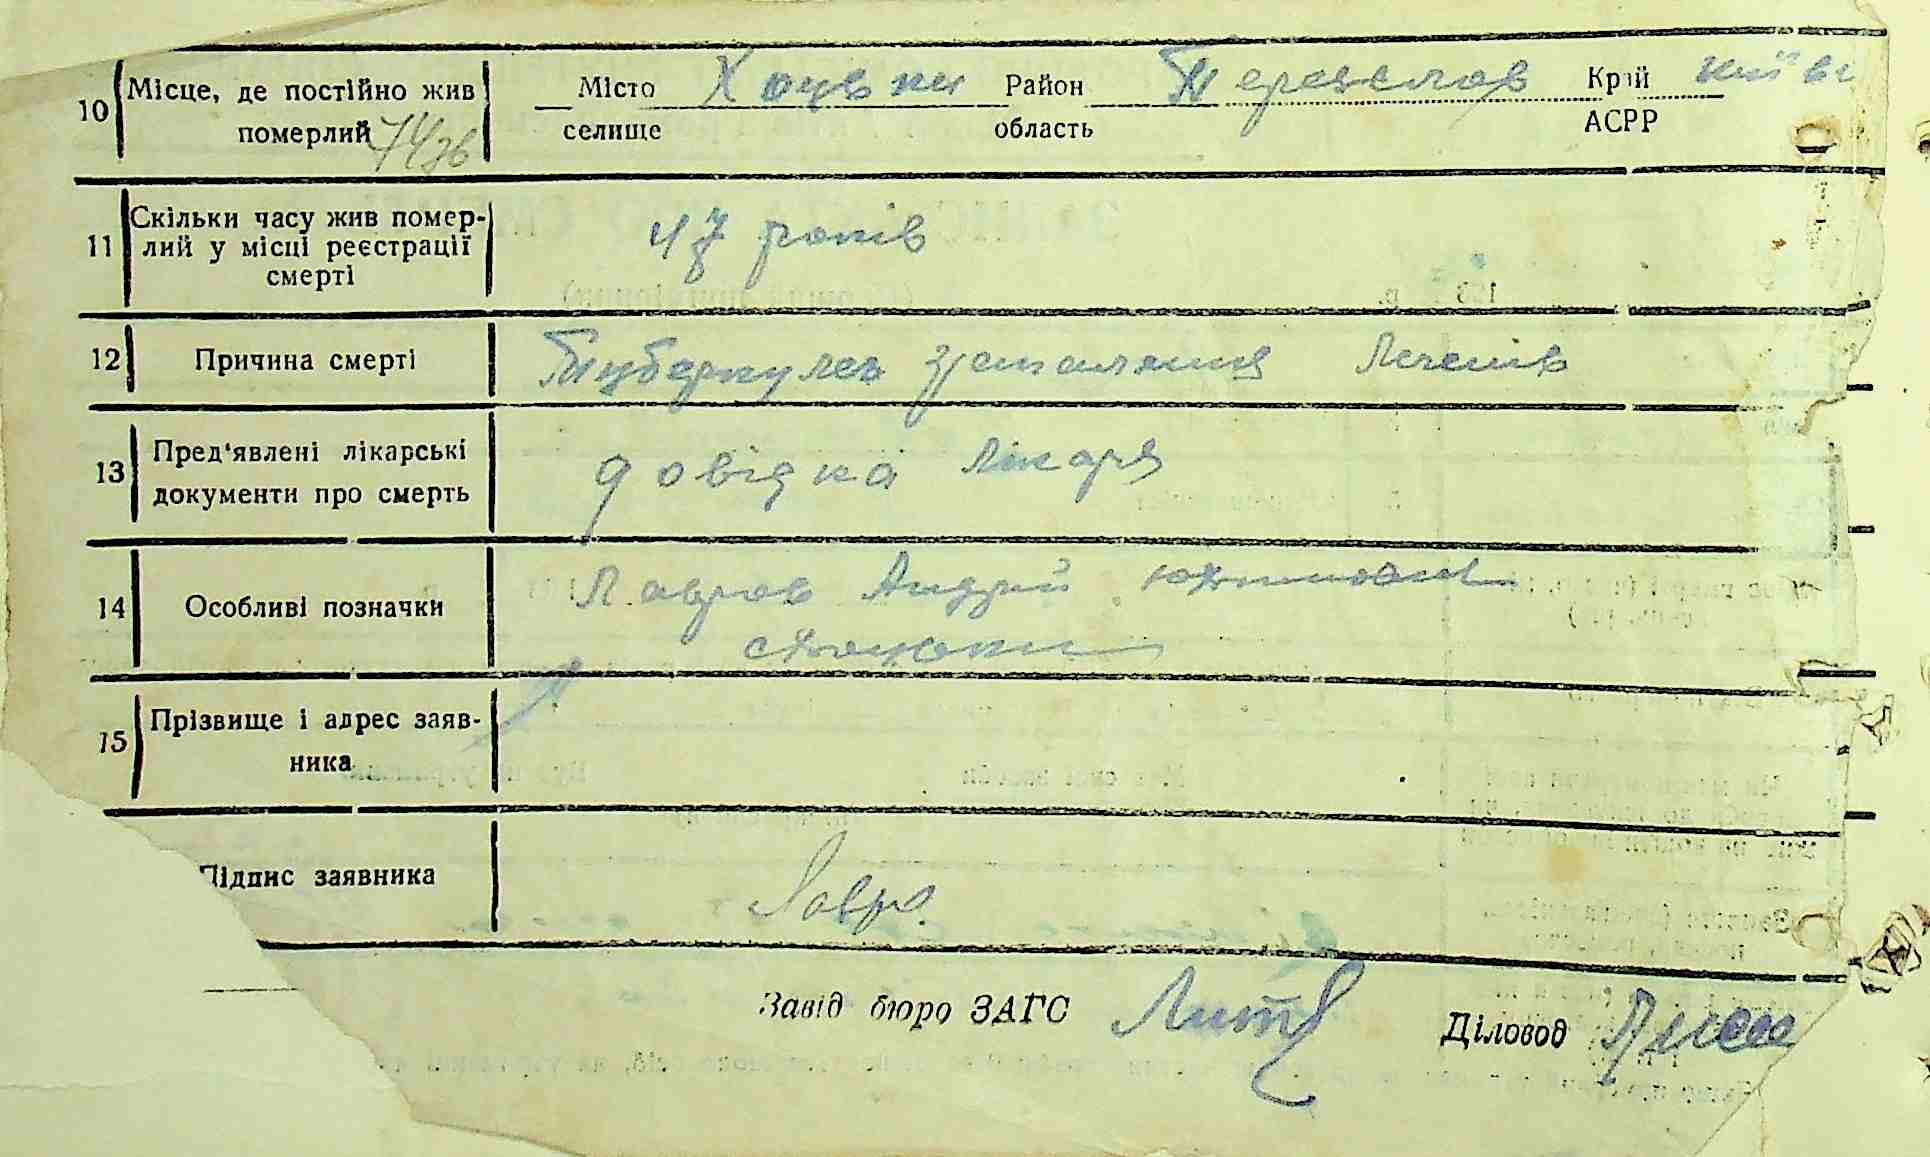 10 Місце, де постійно жив Місто Хоцьки Район Переяслав Край Київ
померлий 74зв селище область АСРР
11 Скільки часу жив помер-
лий у місці реєстрації 47 років
смерті
12 Причина смерті Туберкулез Легенів
13 Пред'явлені лікарські довідка лікаря
документи про смерть
14 Особливі позначки Лавров Андрій
15 Прізвище і адрес заяв-
ника
Підпис заявника Лавро
Завід бюро ЗАГС Діловод